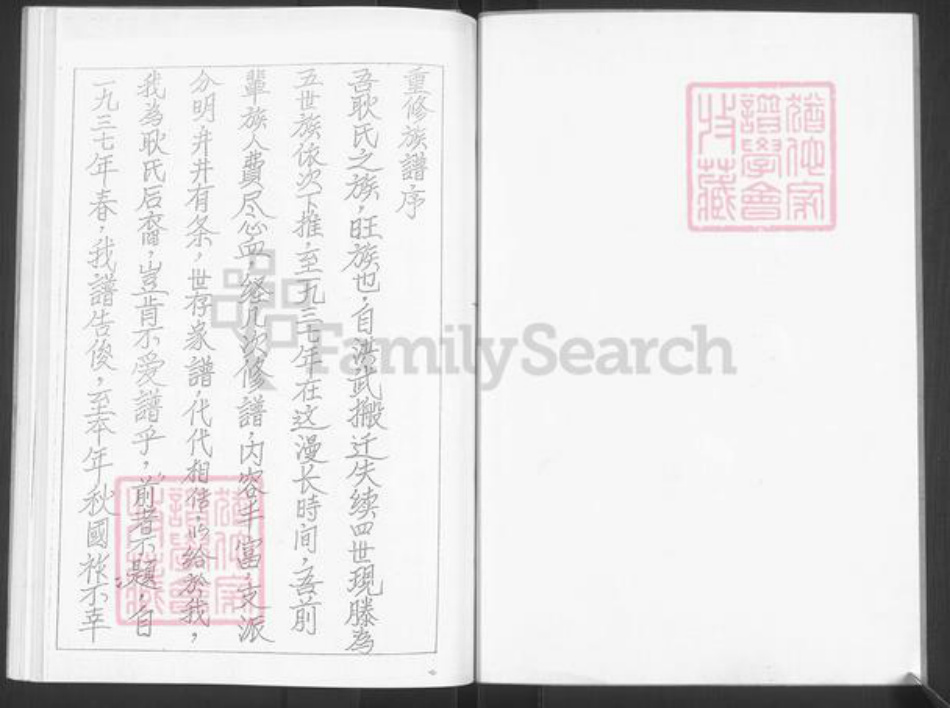 重修族譜序
吾耿氏之族，旺族也，自洪武搬迁失续四世現滕為
五世族依次下推，至一九三七年在这漫长時间，吾前
輩族人費尽心血，经几次修譜，内容丰富，支派
分明井井有条，世存家譜，代代相传，以给於我，
我為耿氏后裔，豈肯不爱譜乎，前者不題，自
一九三七年春，我譜告後，至本年秋國祚不幸
猶他家
譜學會
收藏
猶他家
譜學會
收藏
FamilySearch